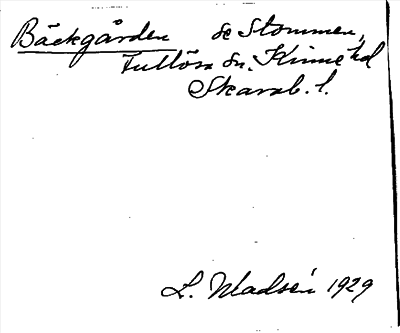 Bäckgården se Stommen,
Fullösa sn. Kinne hd
Skarab. l.
L. Wladsén 1929